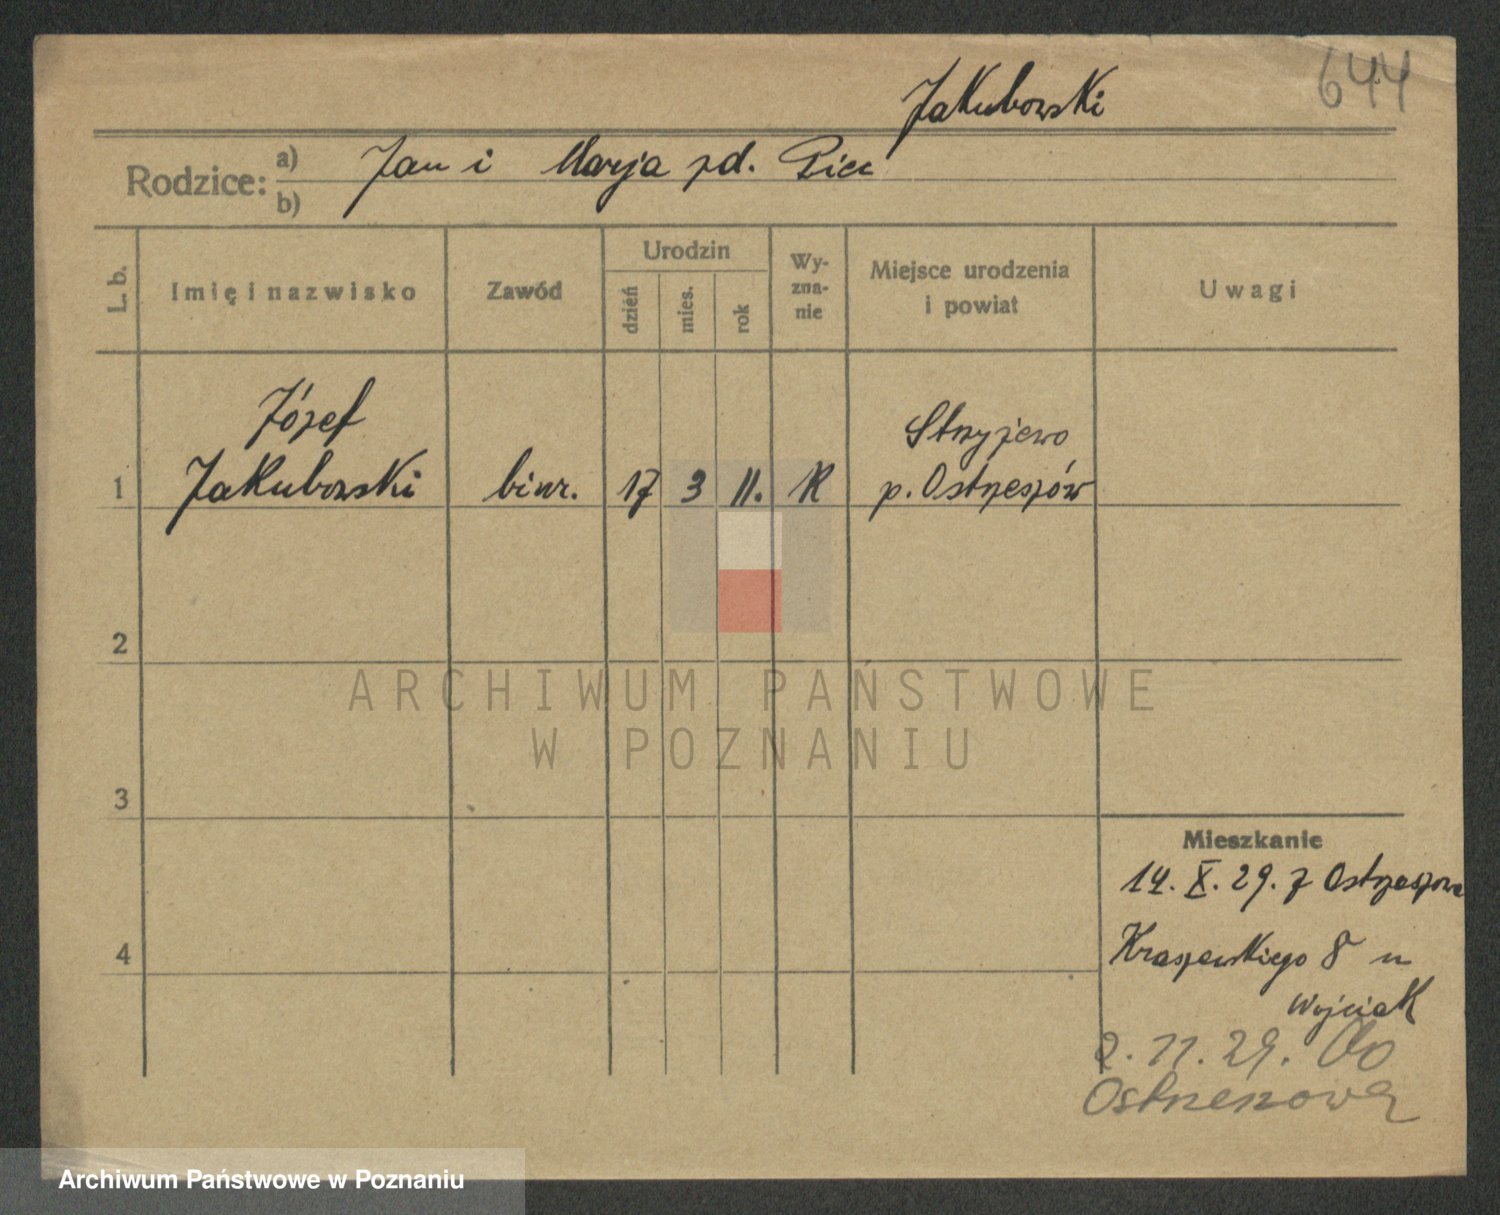 644
Jakubowski
Rodzice: a) Jan i Marja zd. Piec
b)
L. b. Imię i nazwisko Zawód Urodzin dzień mies. rok Wyznanie Miejsce urodzenia i powiat Uwagi
Józef Strzyżewo
1 Jakubowski biur. 17 3 11. K p. Ostrzeszów
2
ARCHIWUM PAŃSTWOWE
W POZNANIU
3
Mieszkanie
14. X. 29. z Ostrzeszowa
4 Kraszewskiego 8 u
Wojciak
2. 11. 29. Do
Ostrzeszowa
Archiwum Państwowe w Poznaniu